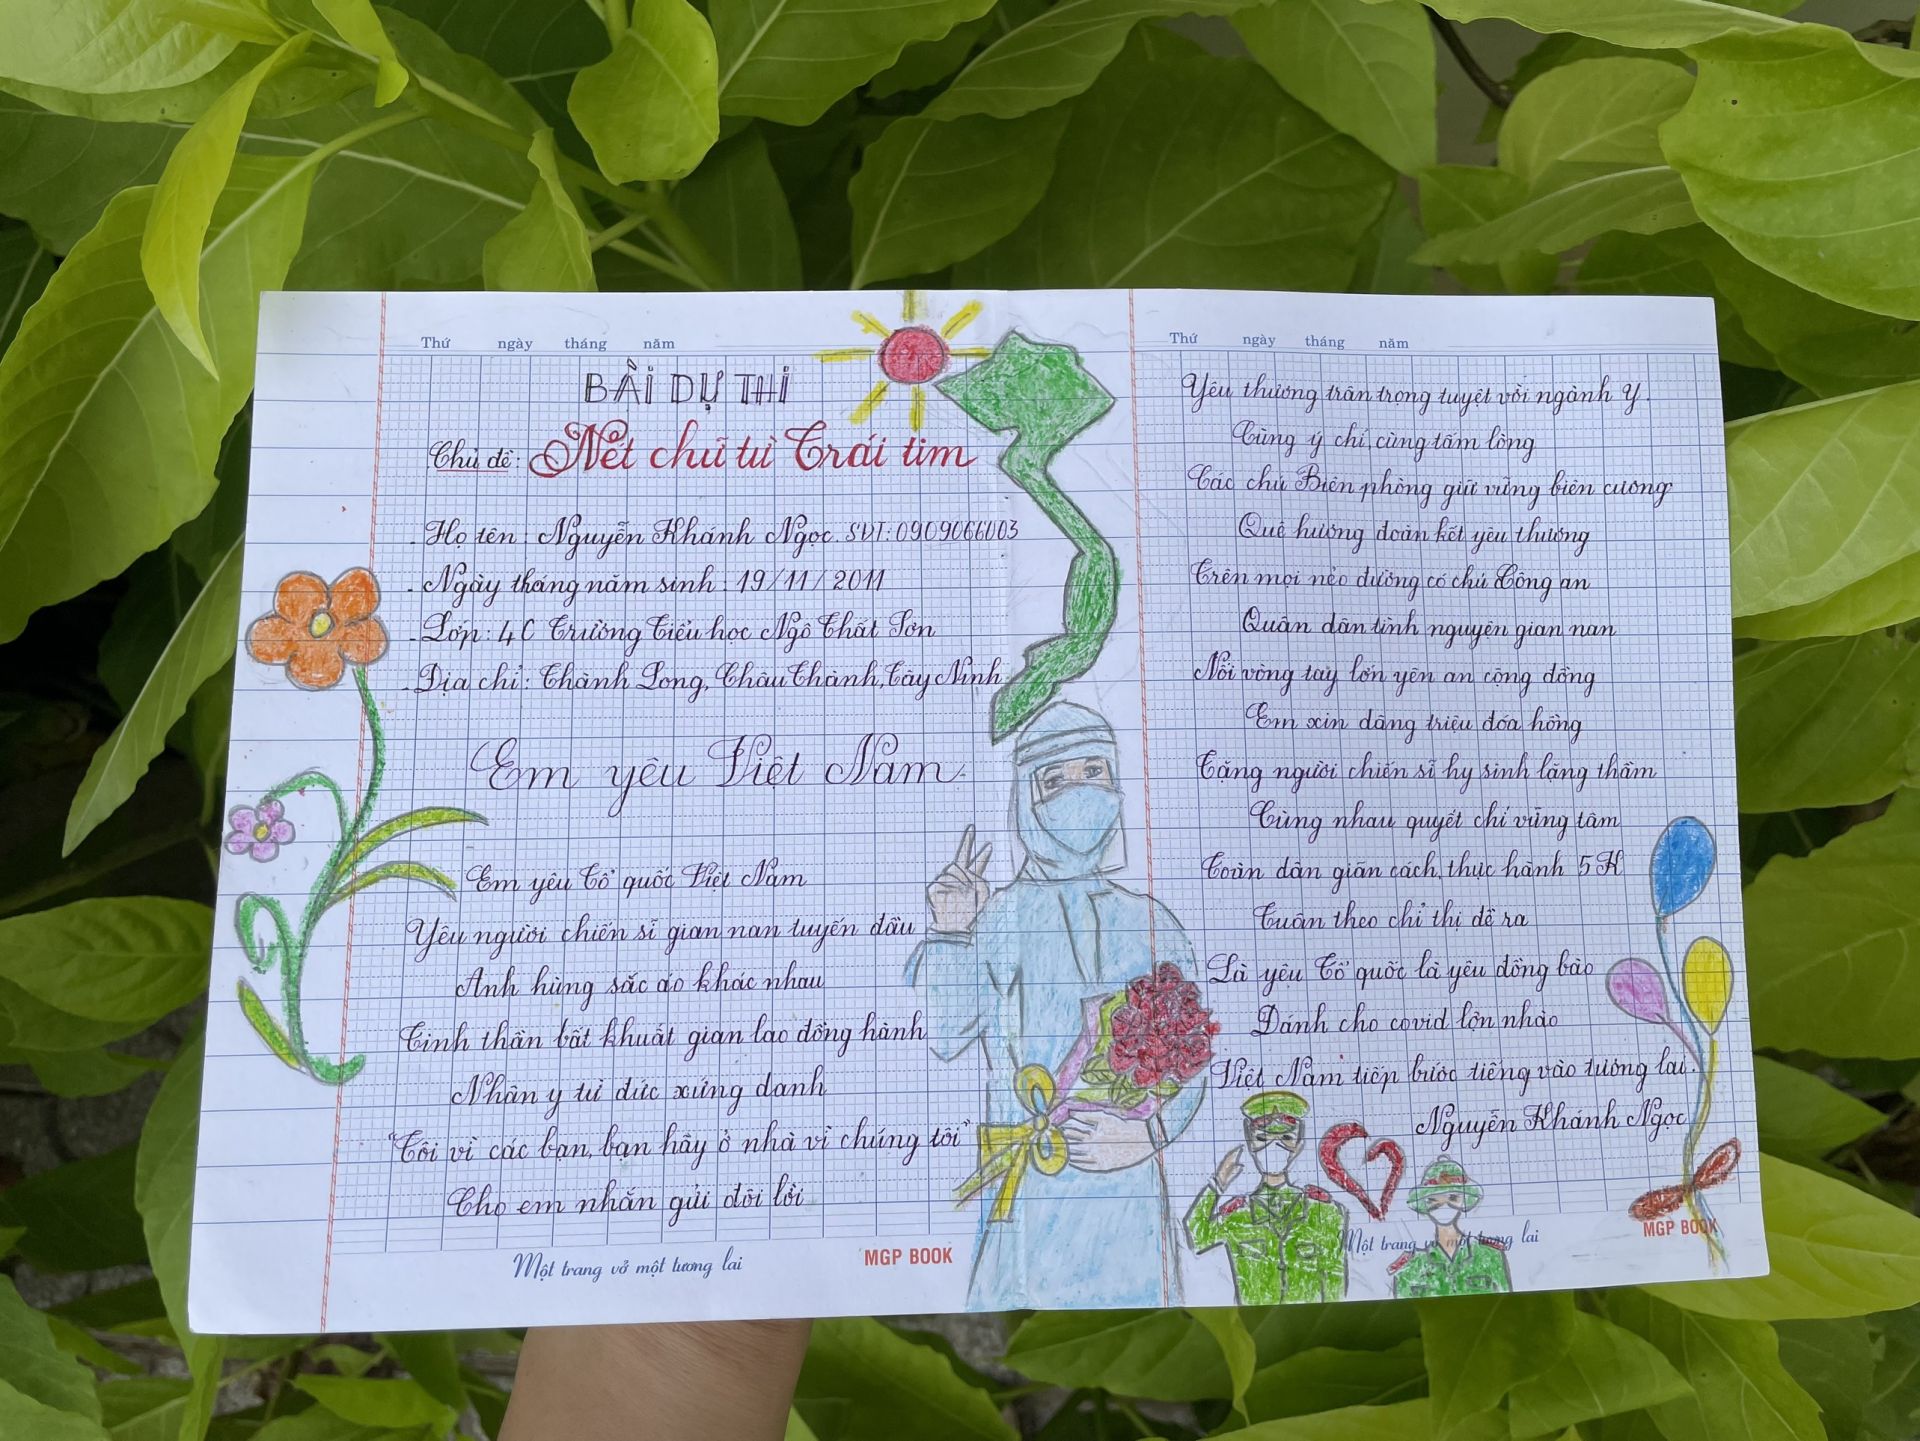 Thứ ngày tháng năm
BÀI DỰ THI
Chủ đề: Nét chữ từ Trái tim
- Họ tên: Nguyễn Khánh Ngọc. SĐT: 0909066003
- Ngày tháng năm sinh: 19/11/2011
- Lớp: 4C Trường Tiểu học Ngô Thất Sơn
- Địa chỉ: Thành Long, Châu Thành, Tây Ninh
Em yêu Việt Nam
Em yêu Tổ quốc Việt Nam
Yêu người chiến sĩ gian nan tuyến đầu
Anh hùng sắc áo khác nhau
Tinh thần bất khuất gian lao đồng hành
Nhân y từ đức xứng danh
"Tôi vì các bạn, bạn hãy ở nhà vì chúng tôi"
Cho em nhắn gửi đôi lời
Một trang vở một tương lai
MGP BOOK
Thứ ngày tháng năm
Yêu thương trân trọng tuyệt vời ngành y.
Cùng ý chí, cùng tấm lòng
Các chú Biên phòng giữ vững biên cương
Quê hương đoàn kết yêu thương
Trên mọi nẻo đường có chú Công an
Quân dân tình nguyện gian nan
Nối vòng tay lớn yên an cộng đồng
Em xin dâng triệu đóa hồng
Tặng người chiến sĩ hy sinh lặng thầm
Cùng nhau quyết chí vững tâm
Toàn dân giãn cách, thực hành 5K
Tuân theo chỉ thị đề ra
Là yêu Tổ quốc là yêu đồng bào
Đánh cho covid lộn nhào
Việt Nam tiếp bước tiếng vào tương lai.
Nguyễn Khánh Ngọc
Một trang vở một tương lai
MGP BOOK